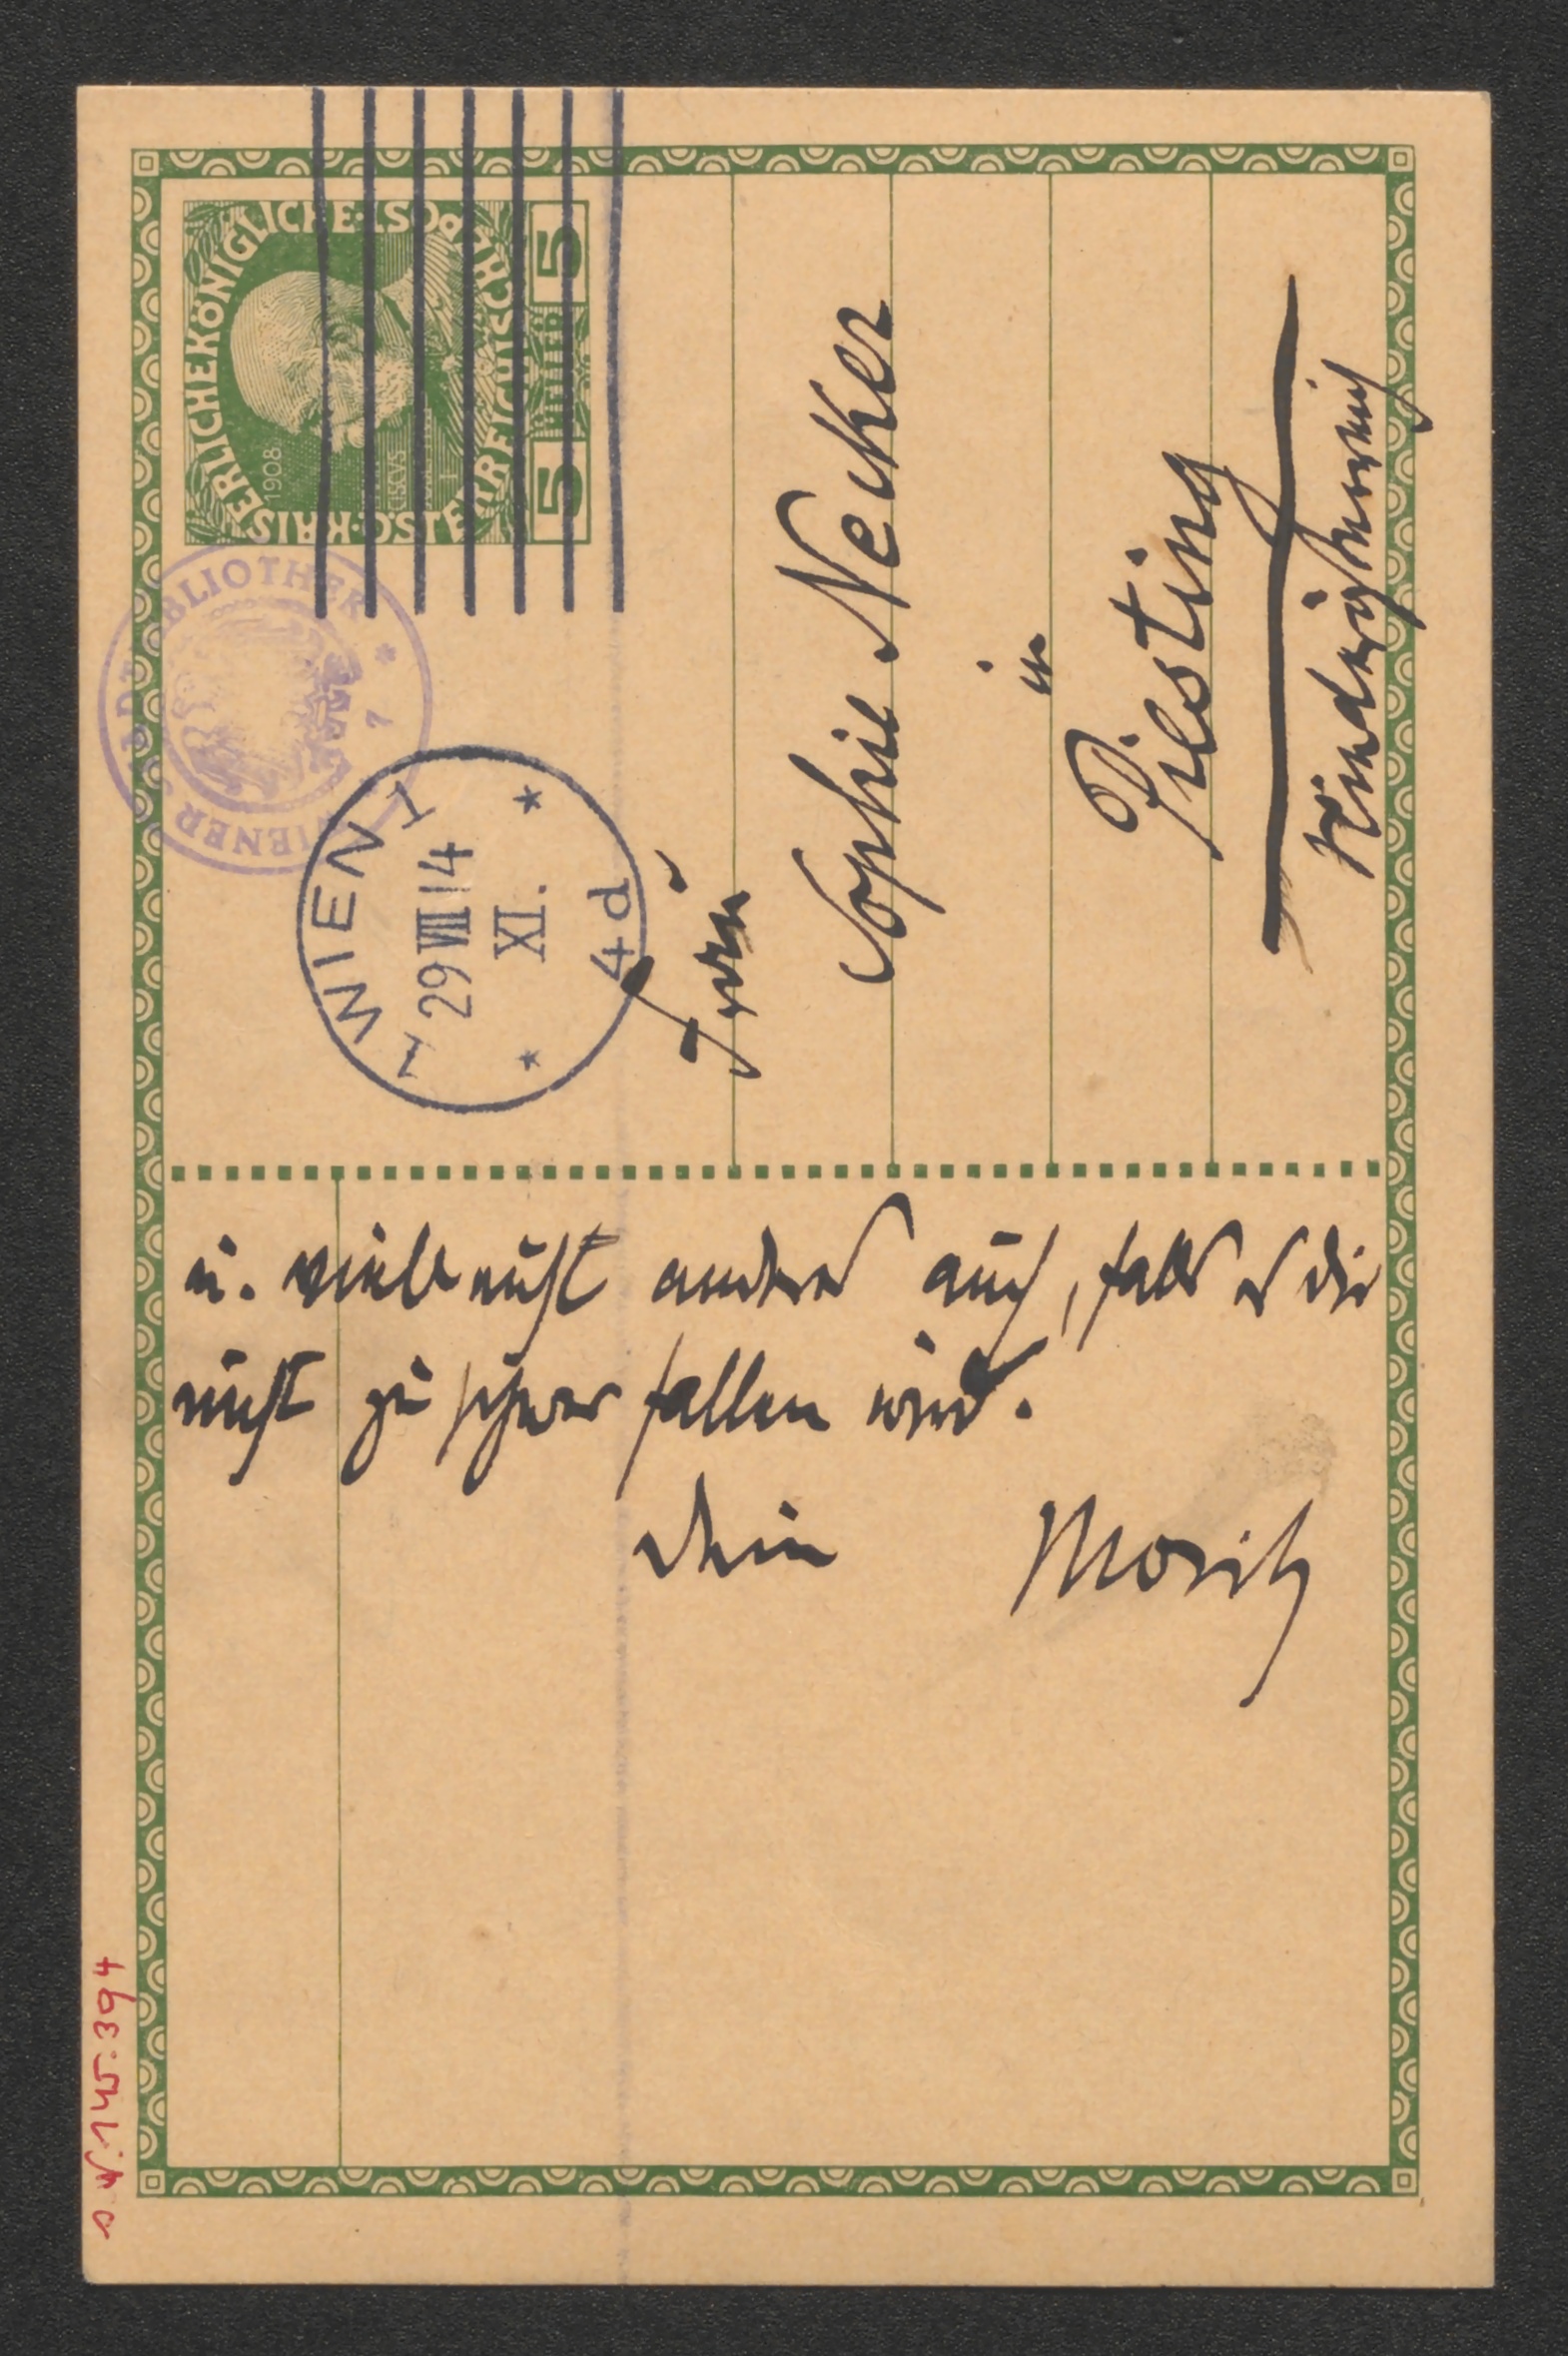 KAISERLICHEKÖNIGLICHE·POST
ÖSTERREICHISCHE
1908
5 HELLER 5
WIENER STADTBIBLIOTHEK
1 WIEN 1
29 VIII 14
XI.
* 4d *
Frau
Sophie Necker
in
Piesting
Niederösterreich
u. vieles andere auch, falls es dir
nicht zu schwer fallen wird.
Dein Moritz
145.394